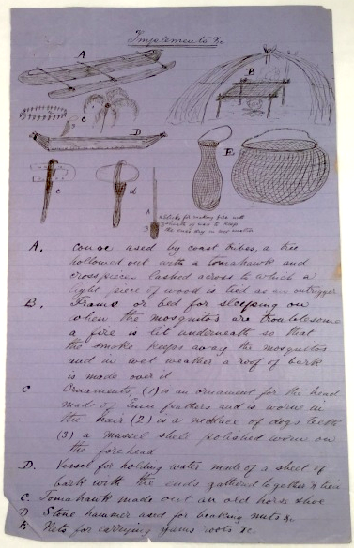 Implements &c
A
B
c
D
E
c
d
A Sticks for making fire with
sheath of wax to keep
the ends dry in wet weather
A. canoe used by coast tribes, a tree
hollowed out with a tomahawk and
crosspieces lashed across to which a
light piece of wood is tied as an outrigger
B. Frame or bed for sleeping on
when the mosquitos are troublesome
a fire is lit underneath so that
the smoke keeps away the mosquitos
and in wet weather a roof of bark
is made over it
C Ornaments, (1) is an ornament for the head
made of feathers and is worn in
the hair (2) is a necklace of dogs teeth
(3) a mussel shell polished worn on
the forehead
D. Vessel for holding water made of a sheet of
bark with the ends gathered together & tied
C. Tomahawk made out an old horse shoe
D Stone hammer used for breaking nuts &c
E Nets for carrying yams roots &c